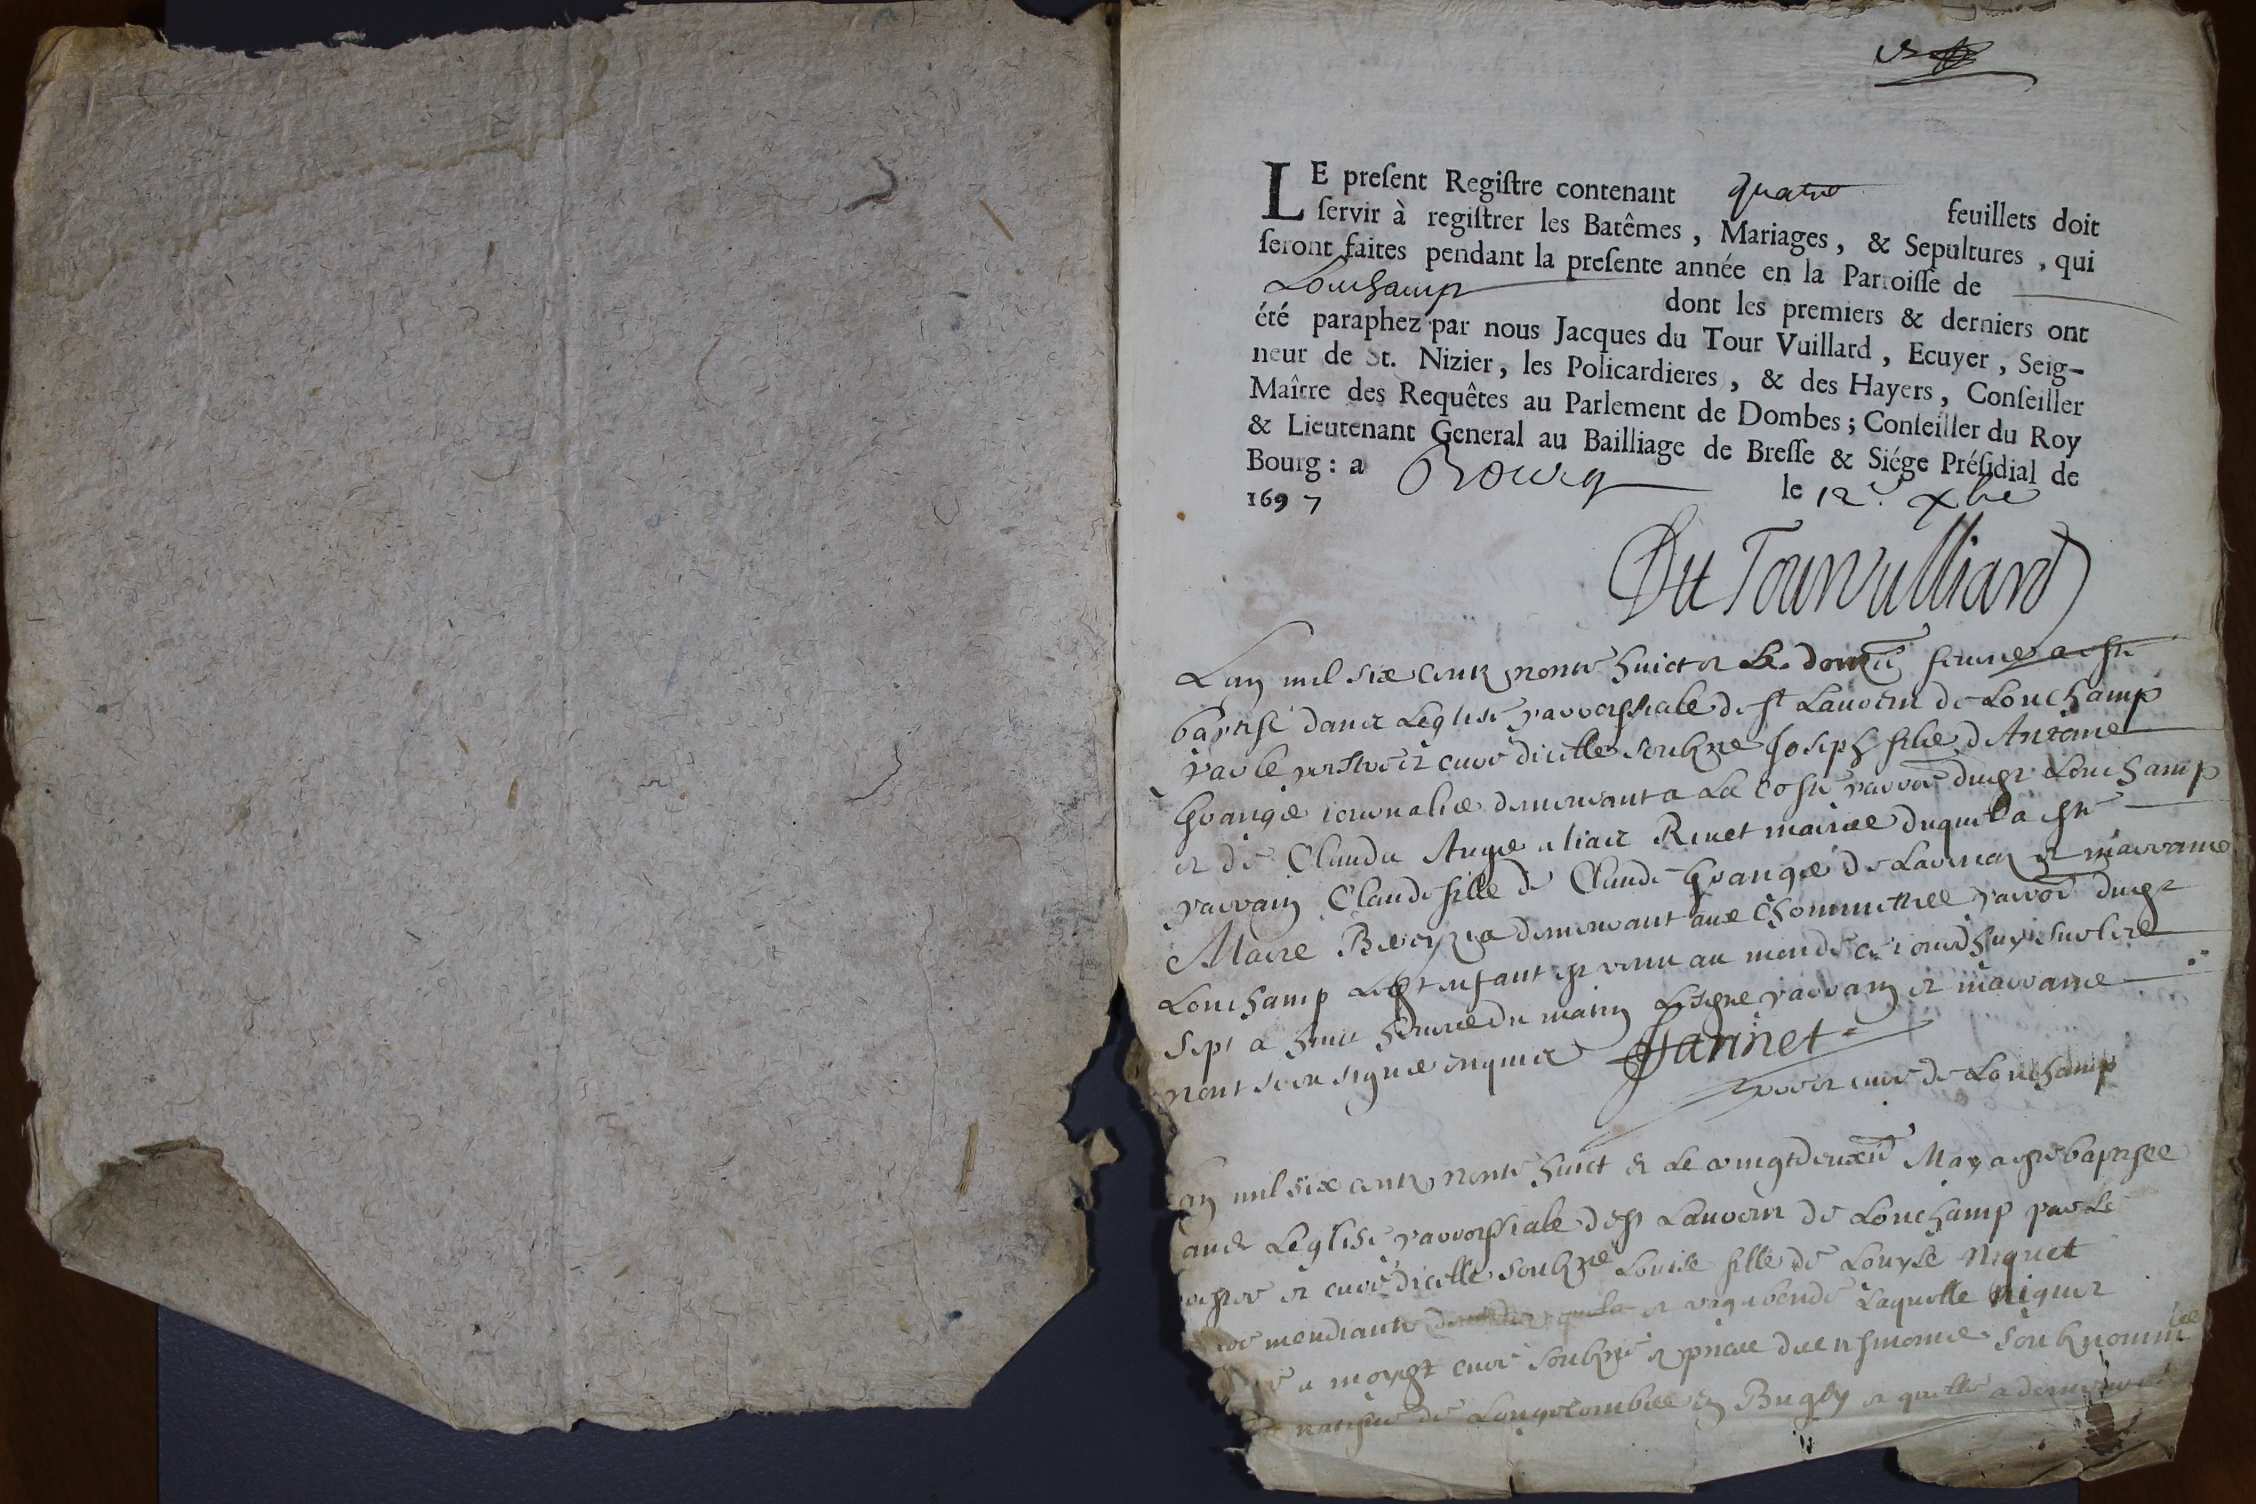 LE preſent Regiſtre contenant quatre feuillets doit
ſervir à regiſtrer les Batêmes, Mariages, & Sepultures, qui
ſeront faites pendant la preſente année en la Parroiſſe de
Lonchamp dont les premiers & derniers ont
été paraphez par nous Jacques du Tour Vuillard, Ecuyer, Seig-
neur de St. Nizier, les Policardieres, & des Hayers, Conſeiller
Maître des Requêtes au Parlement de Dombes; Conſeiller du Roy
& Lieutenant General au Bailliage de Breſſe & Siége Préſidial de
Bourg: a Bourg le 12e. xbre
1697
Du Tourvulliard
Lan mil six centz nonte huict et le douzie a esté
baptisé dans Leglise parroissiale de st Laurent de Lonchamp
par le prestre et curé dicelle soubzne Joseph filz d Antoine
Grangie journalie demeurant a La Coste parroe dudt Lonchamp
et de Clauda alias Rivet mariez duquel a esté
parrain Claude fille de Claude Grangie de et marraine
Marie demeurant aux parroe dudt
Lonchamp Ledt enfant est venu au monde ce jourdhuy sur les
sept a huict heures du matin Lesqlz parrain et marraine
nont sceu signer enquis Janinet
pbre et curé de Lonchamp
an mil six centz nonte huict et Le vingtdeuxie May a esté baptisée
ans Leglise parroissiale de st Laurent de Lonchamp par Le
estre et curé dicelle soubzné Louise fille de Louyse Niquet
mendiante et vagabonde Laquelle Niquet
a moydt curé soubzné et pnce des tesmoins soubznommés
natifve de Longecombe en Bugey et quelle a demeuré